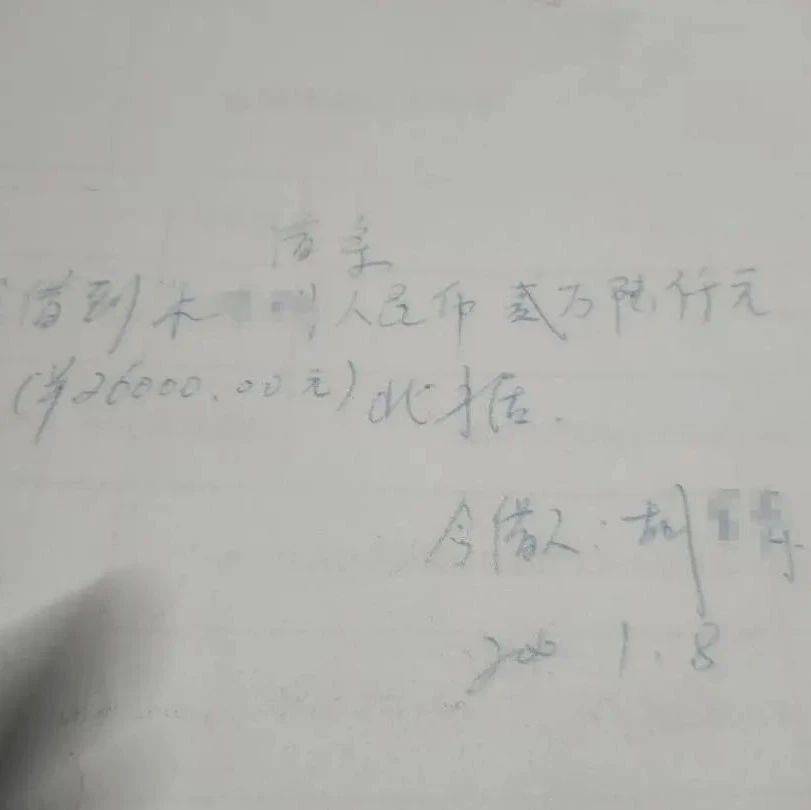 借条
借到朱 人民币贰万陆仟元
(¥26000.00元)此据.
今借人:胡
1.8